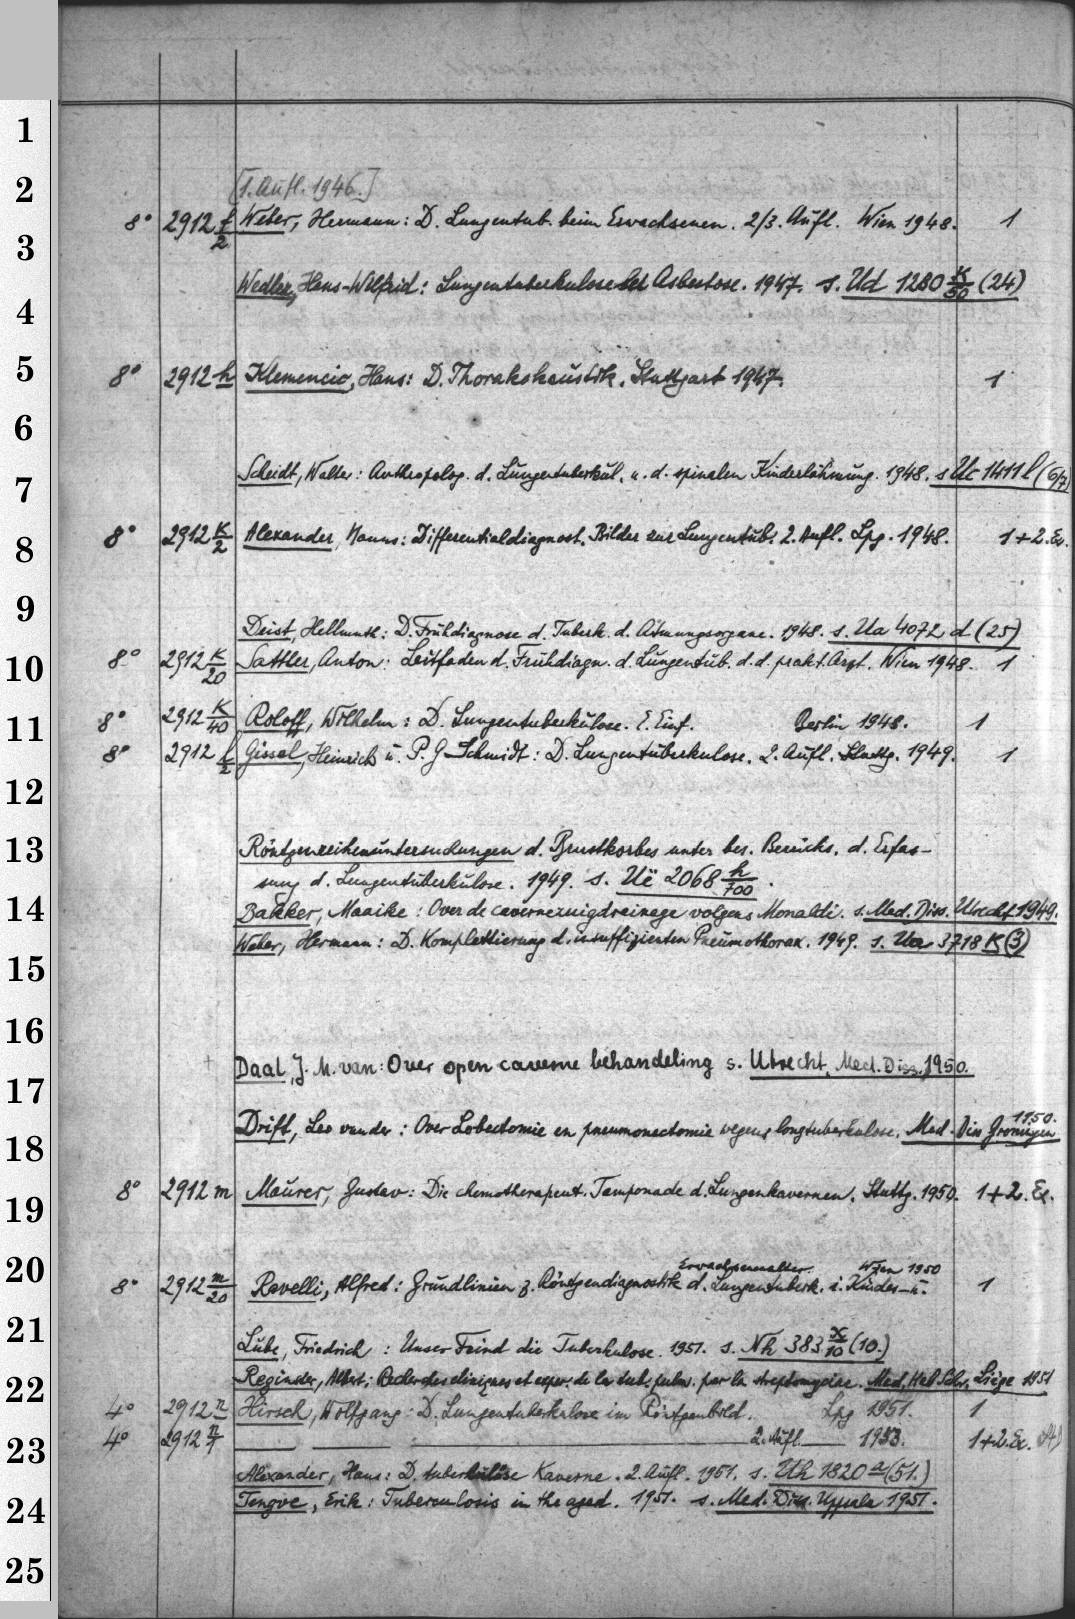 [1. Aufl. 1946.]
8° 2912 f/2 Weber, Hermann: D. Lungentub. beim Erwachsenen. 2/3. Aufl. Wien 1948. 1
Wedler, Hans-Wilfrid: Lungentuberkulose bei Asbestose. 1947. s. Ud 1280 K/50 (24)
8° 2912 h Klemencic, Hans: D. Thorakokaustik. Stuttgart 1947. 1
Scheidt, Walter: Anthropolog. d. Lungentuberkul. u. d. spinalen Kinderlähmung. 1948. s Uc 1411 l (6/7)
8° 2912 K/2 Alexander, Hanns: Differentialdiagnost. Bilder zur Lungentub. 2. Aufl. Lpg. 1948. 1+2. Ex.
Deist, Hellmuth: D. Frühdiagnose d. Tuberk. d. Atmungsorgane. 1948. s. Ua 4072 d (25)
8° 2912 K/20 Sattler, Anton: Leitfaden d. Frühdiagn. d. Lungentub. d. d. prakt. Arzt. Wien 1948. 1
8° 2912 K/40 Roloff, Wilhelm: D. Lungentuberkulose. E. Einf. Berlin 1948. 1
8° 2912 l/2 Gissel, Heinrich u. P. G Schmidt: D. Lungentuberkulose. 2. Aufl. Stuttg. 1949. 1
Röntgenreihenuntersuchungen d. Brustkorbes unter bes. Berücks. d. Erfas-
sung d. Lungentuberkulose. 1949. s. Uë 2068 h/700.
Bakker, Maaike: Over de cavernezuigdrainage volgens Monaldi. s. Med. Diss. Utrecht 1949.
Weber, Hermann: D. Komplettierung d. insuffizienten Pneumothorax. 1949. s. Ua 3718 K (3)
Daal, J. M. van: Over open caverne behandeling s. Utrecht, Med. Diss. 1950.
1950.
Drift, Leo van der: Over Lobectomie en pneumonectomie wegens longtuberkulose. Med. Diss Groningen
8° 2912 m Maurer, Gustav: Die chemotherapeut. Tamponade d. Lungenkavernen. Stuttg. 1950. 1+2. Ex.
Erwachsenenalter. Wien 1950
8° 2912 m/20 Ravelli, Alfred: Grundlinien z. Röntgendiagnostik d. Lungentuberk. i. Kindes- u. 1
Lübe, Friedrich: Unser Feind die Tuberkulose. 1951. s. Nh 383 x/10 (10.)
Reginster, Albert: Recherches cliniques et expér. de la tub. pulm. par la streptomycine. Med. Hab Schr. Liège 1951
4° 2912 n Hirsch, Wolfgang: D. Lungentuberkulose im Röntgenbild. Lpg 1951. 1
4° 2912 n/1 — — — 2. Aufl. — 1953. 1+2. Ex.
Alexander, Hans: D. tuberkulöse Kaverne. 2. Aufl. 1951. s. Uh 1820 a (51.)
Tengve, Erik: Tuberculosis in the aged. 1951. s. Med. Diss. Uppsala 1951.